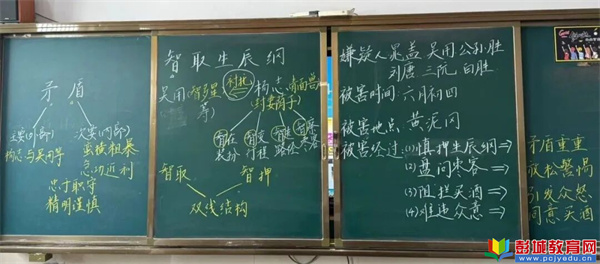 矛盾
主要(外部)
次要(内部)
杨志与吴用等
虽续粗暴
急功近利
忠于职守
精明谨慎
智取生辰纲
吴用(智多星)
对比
杨志(青面兽)
(封妻荫子)
智在
智变
智选
智察
衣扮
行程
路径
枣客
智取
智押
双线结构
嫌疑人 晁盖 吴用 公孙胜
刘唐 三阮 白胜
被害时间:六月初四
被害地点:黄泥冈
被害经过:(1)慎押生辰纲⇒
(2)盘问枣客⇒
(3)阻拦买酒⇒
(4)难违众意⇒
矛盾重重
放松警惕
引发众怒
同意买酒
彭城教育网
www.pcjyedu.cn